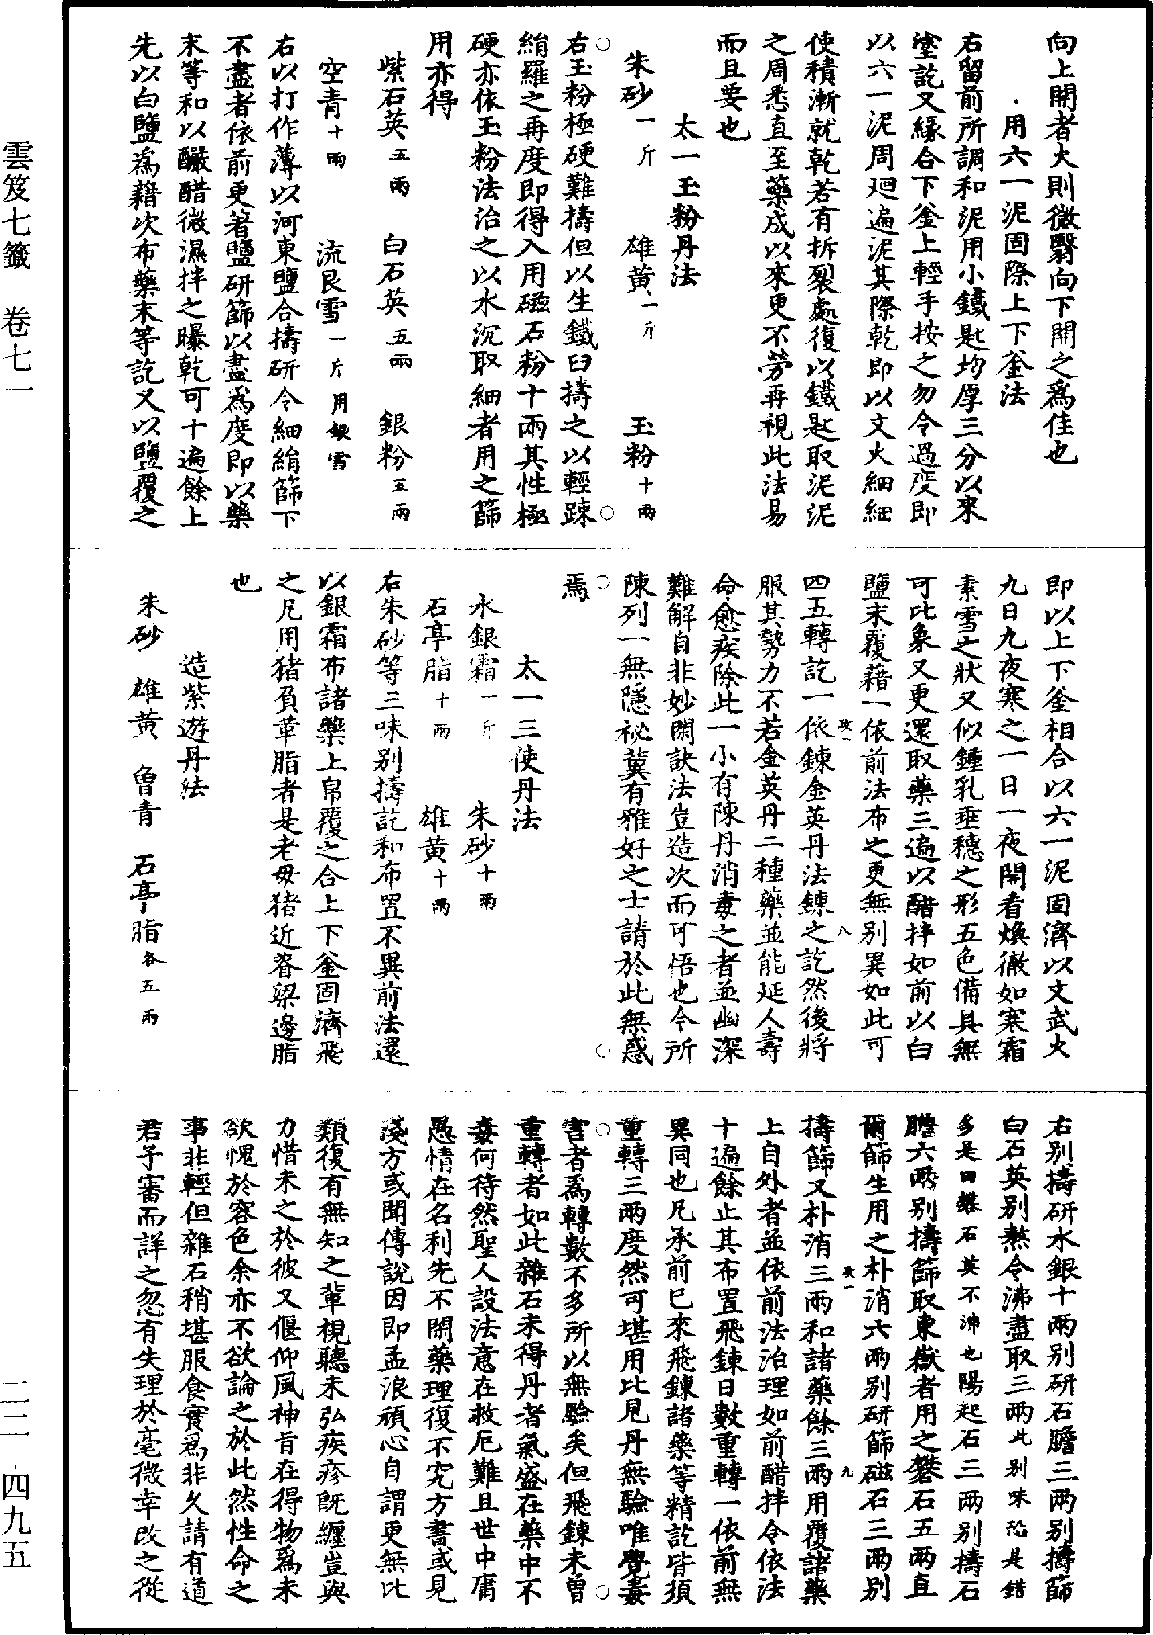 向上開者大則微翳向下開之為佳也
用六一泥固際上下釜法
右留前所調和泥用小鐵匙均厚三分以來
塗訖又緣合下釜上輕手按之勿令過度即
以六一泥周廻遍泥其際乾即以文火細細
使積漸就乾若有拆裂處復以鐵匙取泥泥
之周悉直至藥成以來更不勞再視此法易
而且要也
太一玉粉丹法
朱砂一斤 雄黄一斤 玉粉十兩
右玉粉極硬難擣但以生鐵臼擣之以輕踈
絹羅之再度即得入用磁石粉十兩其性極
硬亦依玉粉法治之以水沉取細者用之篩
用亦得
紫石英五兩 白石英五兩 銀粉五兩
空青十兩 流艮雪一斤用銀雪
右以打作薄以河東鹽合擣研令細絹篩下
不盡者依前更著鹽研篩以盡為度即以藥
末等和以釅醋微濕拌之曝乾可十遍餘上
先以白鹽為藉次布藥末等訖又以鹽覆之
即以上下釜相合以六一泥固濟以文武火
九日九夜寒之一日一夜開看煥徹如寒霜
素雪之狀又似鍾乳垂穗之形五色備具無
可比象又更還取藥三遍以醋拌如前以白
鹽末覆藉一依前法布之更無別異如此可
四五轉訖一依鍊金英丹法鍊之訖然後將
服其勢力不若金英丹二種藥並能延人壽
命愈疾除此一小有陳丹消毒之者並幽深
難解自非妙閑訣法豈造次而可悟也今所
陳列一無隱祕冀有雅好之士請於此無惑
焉
太一三使丹法
水銀霜一斤 朱砂十兩
石亭脂十兩 雄黄十兩
右朱砂等三味別擣訖和布置不異前法還
以銀霜布諸藥上帛覆之合上下釜固濟飛
之凡用猪負革脂者是老母猪近脊梁邊脂
也
造紫遊丹法
朱砂 雄黄 曾青 石亭脂各五兩
右別擣研水銀十兩別研石膽三兩別擣篩
白石英別熬令沸盡取三兩此別味恐是錯
多是田礬石其不沸也陽起石三兩別擣石
膽六兩別擣篩取東嶽者用之礬石五兩直
爾篩生用之朴消六兩別研篩磁石三兩別
擣篩又朴消三兩和諸藥餘三兩用覆諸藥
上自外者並依前法治理如前醋拌令依法
十遍餘止其布置飛鍊日數重轉一依前無
異同也凡承前已來飛鍊諸藥等精訖皆須
重轉三兩度然可堪用比見丹無驗唯覺毒
害者為轉數不多所以無驗矣但飛鍊未曾
重轉者如此雜石未得丹者氣盛在藥中不
毒何待然聖人設法意在救厄難且世中庸
愚情在名利先不閑藥理復不究方書或見
淺方或聞傳說因即孟浪頑心自謂更無比
類復有無知之輩視聽未弘疾疹既纏豈與
力惜未之於彼又偃仰風神肯在得物為未
欲愧於容色余亦不欲論之於此然性命之
事非輕但雜石稍堪服食實為非久請有道
君子審而詳之忽有失理於毫微幸改之從
雲笈七籤 卷七一
二二-四九五